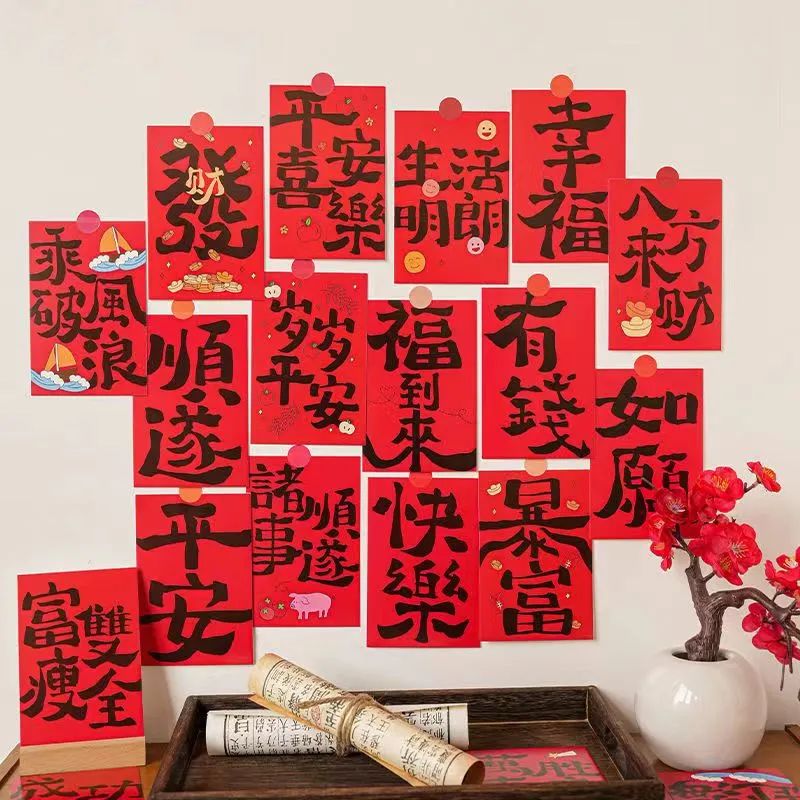 發财
平安
喜樂
生活
明朗
幸福
八方
來财
乘風
破浪
順遂
岁岁
平安
福到來
有錢
如愿
平安
諸事
順遂
快樂
暴富
富瘦
雙全
成功